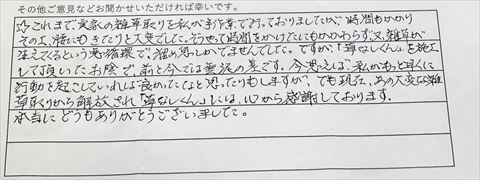 その他ご意見などお聞かせいただければ幸いです。
☆これまで実家の雑草取りを私が手作業で行っておりましたが、時間もかかり
その上、腰にもきたりと大変でした。そうやって時間をかけたにもかかわらず又、雑草が
生えてくるという悪循環で、溜め息しかでませんでした。ですが、「草なしくん」を施工
して頂いたお陰で、前と今では雲泥の差です。今思えば、私がもっと早くに
行動を起こしていれば良かったなと思ったりもしますが、でも現在、あの大変な雑
草取りから解放され「草なしくん」には、心から感謝しております。
本当にどうもありがとうございました。